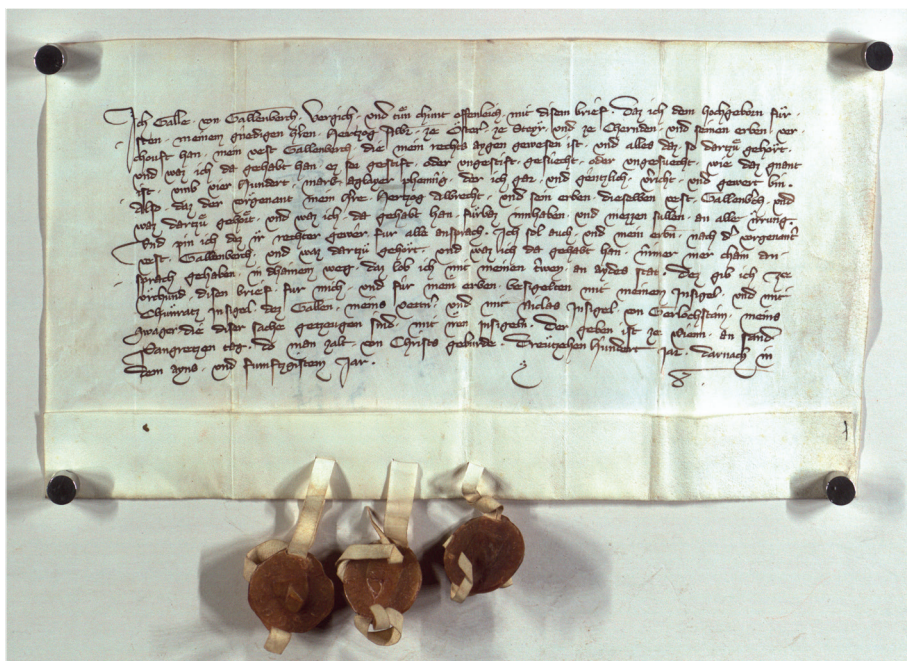 Ich Galle · von Gallenberch · vergich · vnd tůn chunt offenleich · mit disem brief · daz ich dem hochgeborn für-
sten · meinem gnedigen h̄ren · Hertzog Albr̄ · ze Osterr̄ · ze Steyr · vnd ze Chernden · vnd seinen erben · ver-
chouft han · mein vest Gallenberch · die mein rechts aygen gewesen ist · vnd alles daz so dartzů gehört ·
vnd waz ich da gehabt han ez sei gestift · oder vngestift · gesuecht · oder vngesuecht · wie daz gnant
ist · vmb vier Hundert · mark · aglayer phennig · der ich gar vnd gentzlich · v̄richt · vnd gewert bin ·
Also · daz der vorgenant mein h̄re · Hertzog Albrecht · vnd sein erben · dieselben vest · Gallenb̄ch · vnd
waz dartzů gehört · vnd waz ich da gehabt han · fürbaz innhaben vnd niezzen sullen · an alle irrung ·
Vnd pin ich dez ir rechter gewer · für alle ansprach · Ich sol auch · vnd mein erbn̄ · nach d̄ vorgenantn̄
vest · Gallenberch · vnd waz dartzů gehört · vnd waz ich da gehabt han · nimer mer chain an-
sprach gehaben · in dhainem weg · daz lob ich mit meinen trewn · an aydes stat · Dez gib ich ze
vrchund · disen brief · für mich · vnd für mein erben · besigelten mit meinem Insigel · vnd mit
Chunratz Insigel dez Gallen · meins vettern̄ · vnd mit Niclas Insigel · von Gerlochstain · meins
swager · die diser sache getzeugen sind · mit irn insigeln · Der geben ist ze Wienn · an sand
Pangretzen tag · do man zalt · von Christs gebürde · Dreutzehen Hundert · Jar · darnach in
dem ayns · vnd fumftzgistem Jar ·